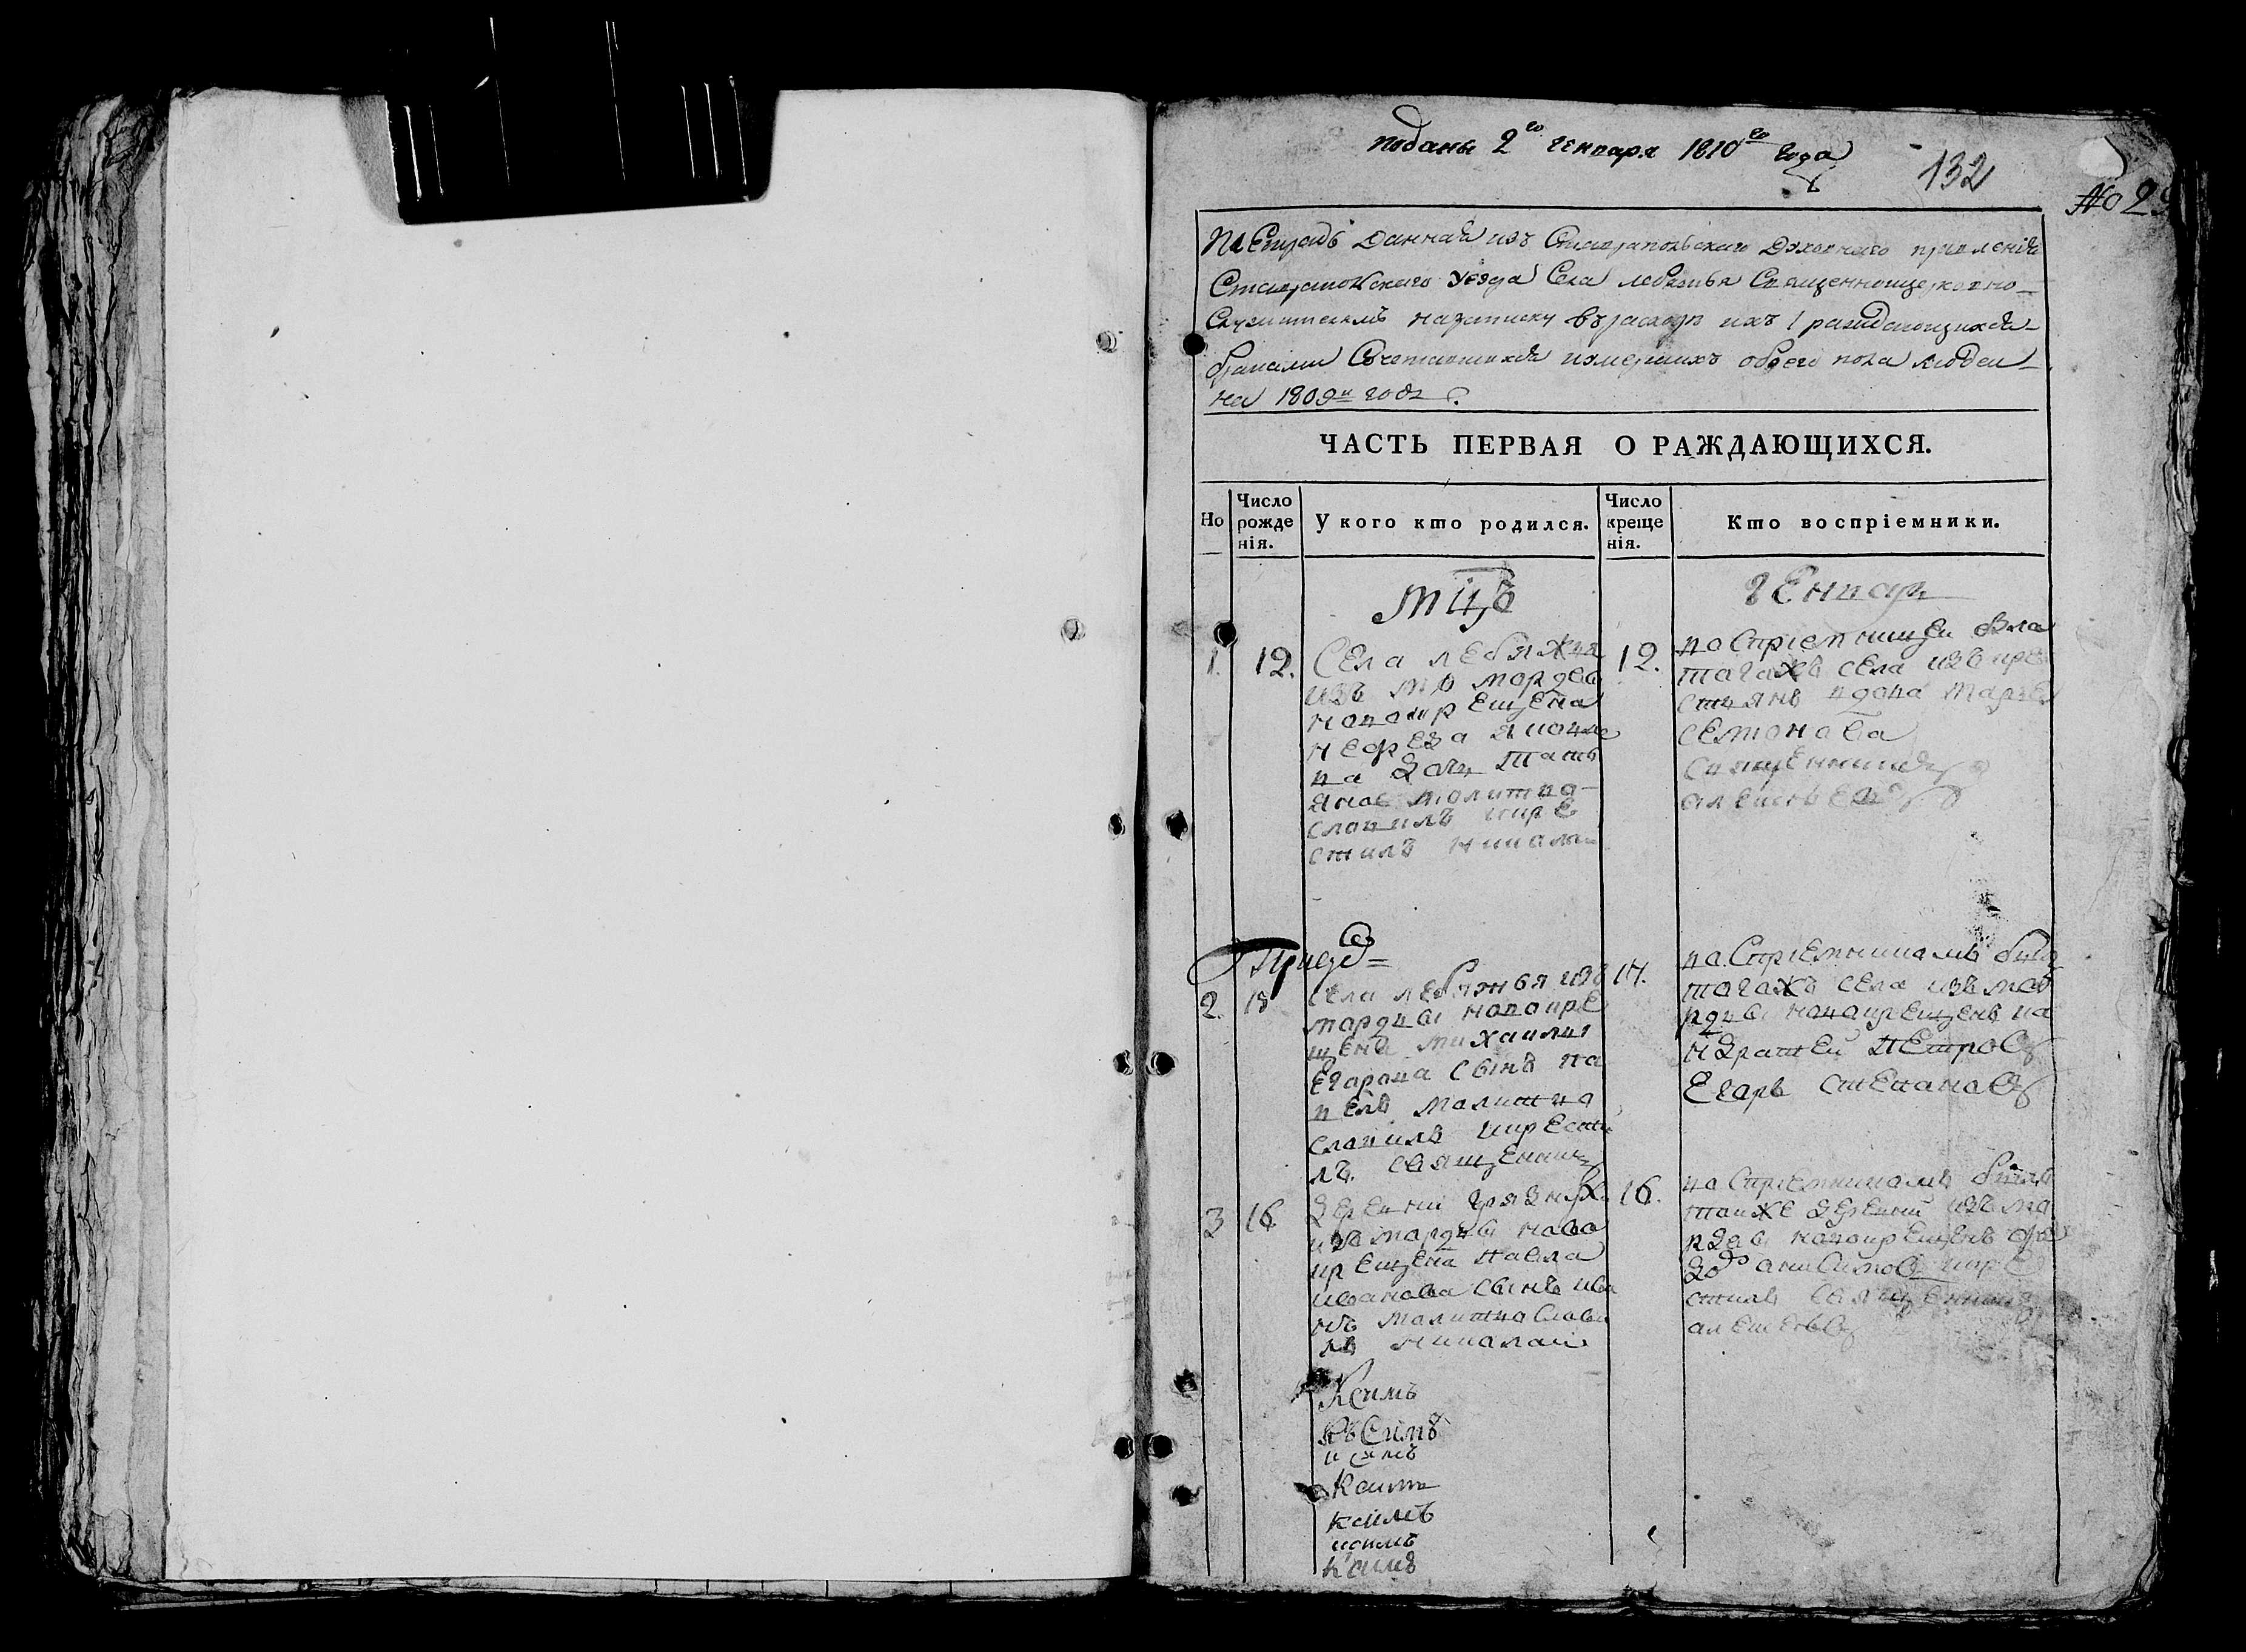 поданы 2го генваря 1810го года
132
№ 29
Тетрадь данная изъ Ставропольскаго духовнаго правленія
Ставропольскаго уезда Села лебяжья Священноцерковно-
Служителямъ на записку въ
браками Сочетавшихся умершихъ обоего пола людей
на 1809й годъ
ЧАСТЬ ПЕРВАЯ О РАЖДАЮЩИХСЯ.
Но
Число рожденія.
У кого кто родился.
Число крещенія.
Кто воспріемники.
мцъ
генварь
1.
12.
Села лебяжья
изъ мордвы
новокрещена
на дочь Татья
яна молитво
словилъ икре
стилъ николаи
12.
воспріемницеи была
тогожъ села изъ кре
стьянъ вдова марья
семонова
священникъ
алексеевъ
2.
13
села лебяжья изъ
мордвы новокре
щена михаила
егорова сынъ па
велъ молитво
словилъ икрести
лъ священникъ
14.
воспріемникомъ былъ
тогожъ села изъ мо
рдвы новокрещенъ ко
ндратеи петровъ
егоръ степановъ
3
16
деревни грязнухи
изъ мордвы ново
крещена павла
иванова сынъ ива
нъ молитвослови
лъ николаи
16.
воспріемникомъ былъ
тоиже деревни изъ мо
рдвы новокрещенъ фе
до анисимовъ икре
стилъ священникъ
алексеевъ
Ксимъ
къ Симъ
ксимъ
Ксимъ
ксимъ
ксимъ
ксимъ